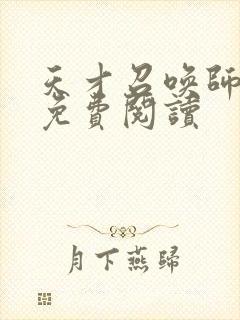 天才召喚師
免費閱讀
月下燕歸